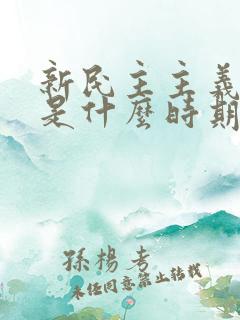 新民主主義
是什麼時期
孫楊考
未经同意禁止转载